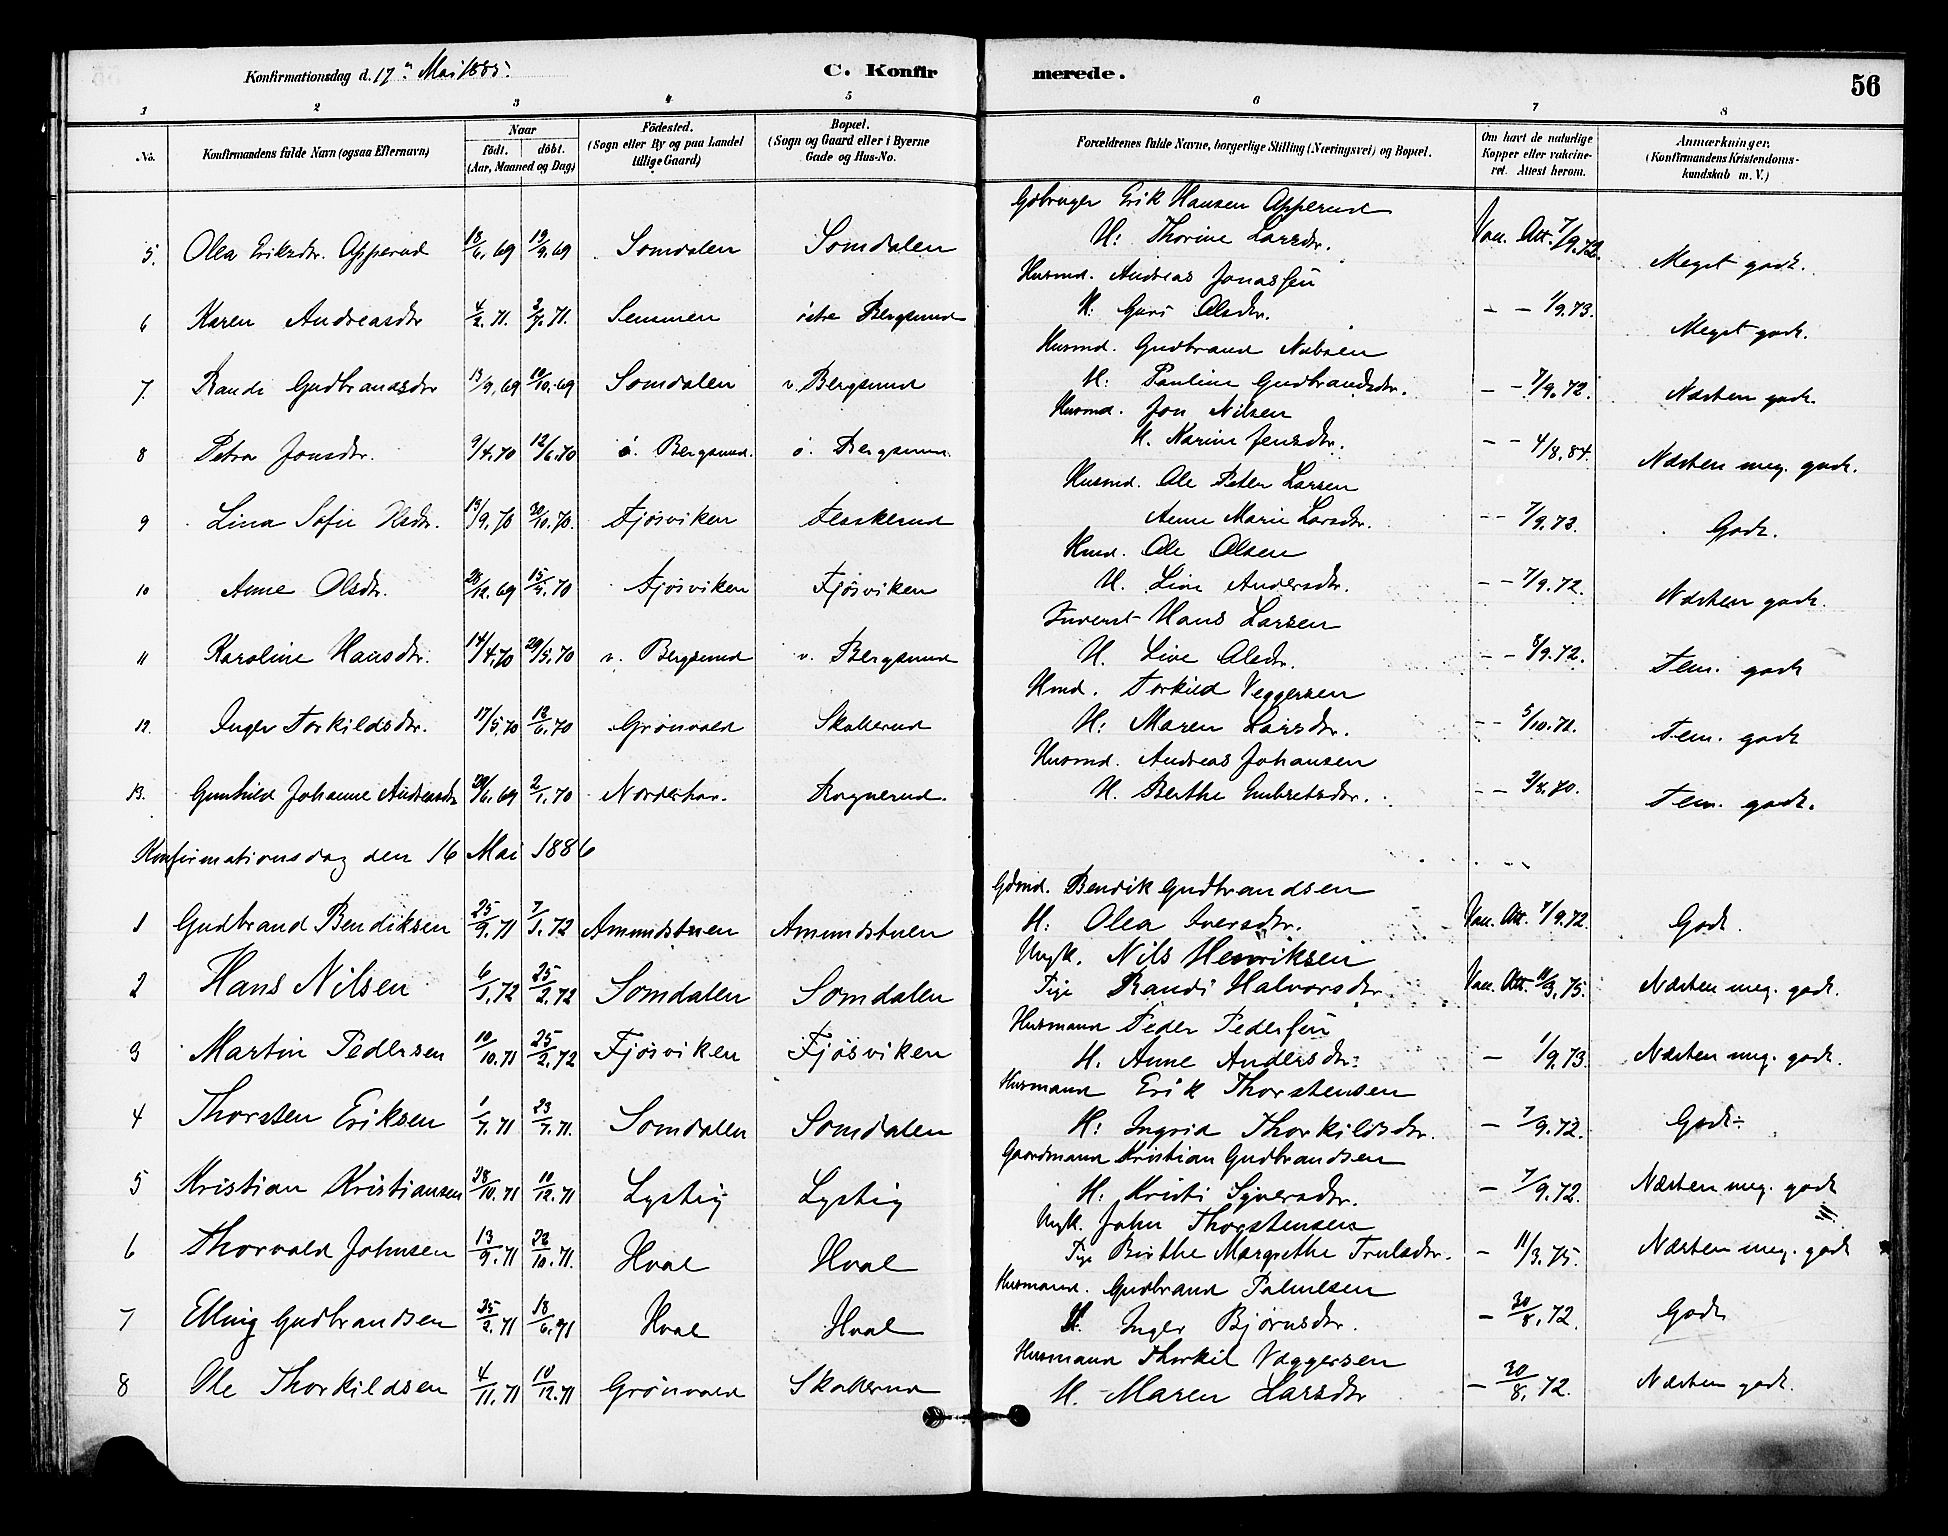 Konfirmationsdag d. 17de Mai 1885.
C. Konfirmerede.
56
1 2 3 4 5 6 7 8
No.
Konfirmandens fulde Navn (ogsaa Efternavn)
Naar
født. døbt.
(Aar, Maaned og Dag)
Födested.
(Sogn eller By og paa Landet tillige Gaard)
Bopæl.
(Sogn og Gaard eller i Byerne Gade og Hus-No.
Forældrenes fulde Navne, borgerlige Stilling (Næringsvei) og Bopæl.
Om havt de naturlige Kopper eller vakcineret. Attest herom.
Anmærkninger.
(Konfirmandens Kristendomskundskab m. V.)
Gdbruger Erik Hansen Apperud
5. Olea Eriksdr. Apperud 13/6, 69 19/9, 69 Somdalen Somdalen H: Thorine Larsdr. Vac. Att. 7/9. 72. Meget godt.
Husmd. Andreas Jonassen
6 Karen Andreasdtr 4/2. 71. 2/7. 71. Semmen östre Bergsund H. Guri Olsdr. - - 1/9. 73. Meget godt.
Husmd. Gudbrand Nubsen
7. Randi Gudbrandsdtr 13/9, 69 10/10. 69 Somdalen v. Bergsund H: Pauline Gudbrandsdr. - - 7/9. 72. Næsten godt.
Husmd. Jon Nilsen
8 Petra Jonsdtr. 9/4. 70 12/6. 70 ö. Bergsund. ö. Bergsund. H. Karine Jensdtr. - - 4/8. 84. Næsten meg. godt.
Husmd. Ole Peter Larsen
9 Lina Sofie Olsdtr. 13/9. 70 30/10. 70. Fjösviken Feskerud Anne Marie Larsdtr. - - 7/9. 72. Godt.
Hmd. Ole Olsen
10 Anne Olsdtr. 28/12. 69 15/5. 70 Fjösviken Fjösviken H. Live Andersdtr. - - 7/9. 72. Næsten godt.
Inderst Hans Larsen
11 Karoline Hansdtr. 14/4. 70 29/5. 70 v. Bergsund v. Bergsund H. Live Olsdr. - - 8/9. 72. Tem. godt
Hmd. Torkild Veggersen
12. Inger Torkildsdtr. 17/5. 70 12/6. 70 Grönvold Skollerud H: Maren Larsdtr. - - 5/10. 72. Tem. godt
Husmd. Andreas Johansen
13. Gunhild Johanne Andreasdtr 29/6. 69 2/1. 70 Norderhov. Rognerud. H. Berthe Embretsdtr. - - 3/8. 70. Tem. godt.
Konfirmationsdag den 16 Mai 1886
Gdmd. Bendik Gudbrandsen
1 Gudbrand Bendiksen 25/9. 71 7/1. 72 Amundstuen Amundstuen H: Olea Iversdtr. Vac. Att. 7/9. 72. Godt.
Ungk. Nils Henriksen
2 Hans Nilsen 6/1. 72 25/2. 72 Somdalen Somdalen Pige Randi Halvorsdtr Vac. Att. 11/3. 75. Næsten meg. godt.
Husmand Peder Pedersen
3 Martin Pedersen 10/10. 71 25/2. 72 Fjösviken Fjösviken H. Anne Andersdtr: - 1/9. 73. Næsten meg. godt.
Husmand Erik Thorstensen
4 Thorsten Eriksen 1/7. 71 23/7. 71. Somdalen Somdalen H: Ingrid Thorkildsdtr. - 7/9. 72. Godt.
Gaardmand Kristian Gudbrandsen
5 Kristian Kristiansen 28/10. 71 10/12. 71 Lystig Lystig H: Kristi Syversdtr. - 7/9. 72. Næsten meg. godt
Ungk. John Thorstensen
6 Thorvald Johnsen 13/9. 71 22/10. 71. Hval Hval Pige Birthe Margrethe Trulsdtr. - 11/3. 75. Næsten meg. godt
Husmand. Gudbrand Palmesen
7 Elling Gudbrandsen 25/2. 71 18/6. 71 Hval Hval H. Inger Bjørnsdtr. - 30/8. 72. Godt
Husmand Thorkil Veggersen
8 Ole Thorkildsen 4/11. 71 10/12. 71 Grönvold Skollerud H. Maren Larsdtr - 30/8. 72. Næsten godt.